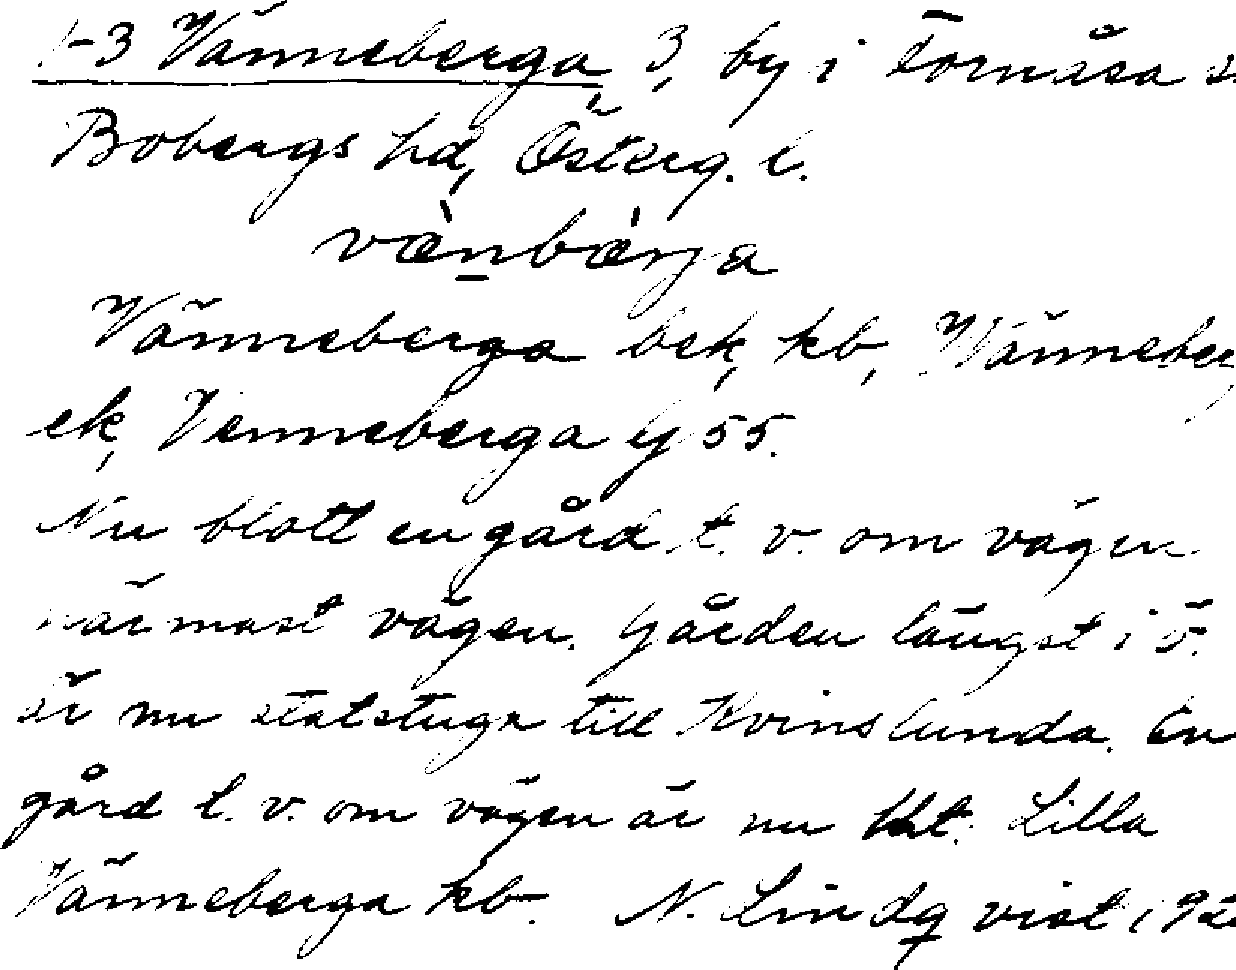 1-3 Vänneberga, 3, by i Fornåsa s
Bobergs hd, Österg. l.
væ̀nbæ̀rja
Vänneberga bek, kb, Wänneber
ek, Venneberga Lj 55.
Nu blott en gård t. v. om vägen
närmast vägen. Gården längst i ö.
är nu statstuga till Kvinslunda. En
gård t. v. om vägen är nu lht. Lilla
Vänneberga kb. N. Lindq vist 192